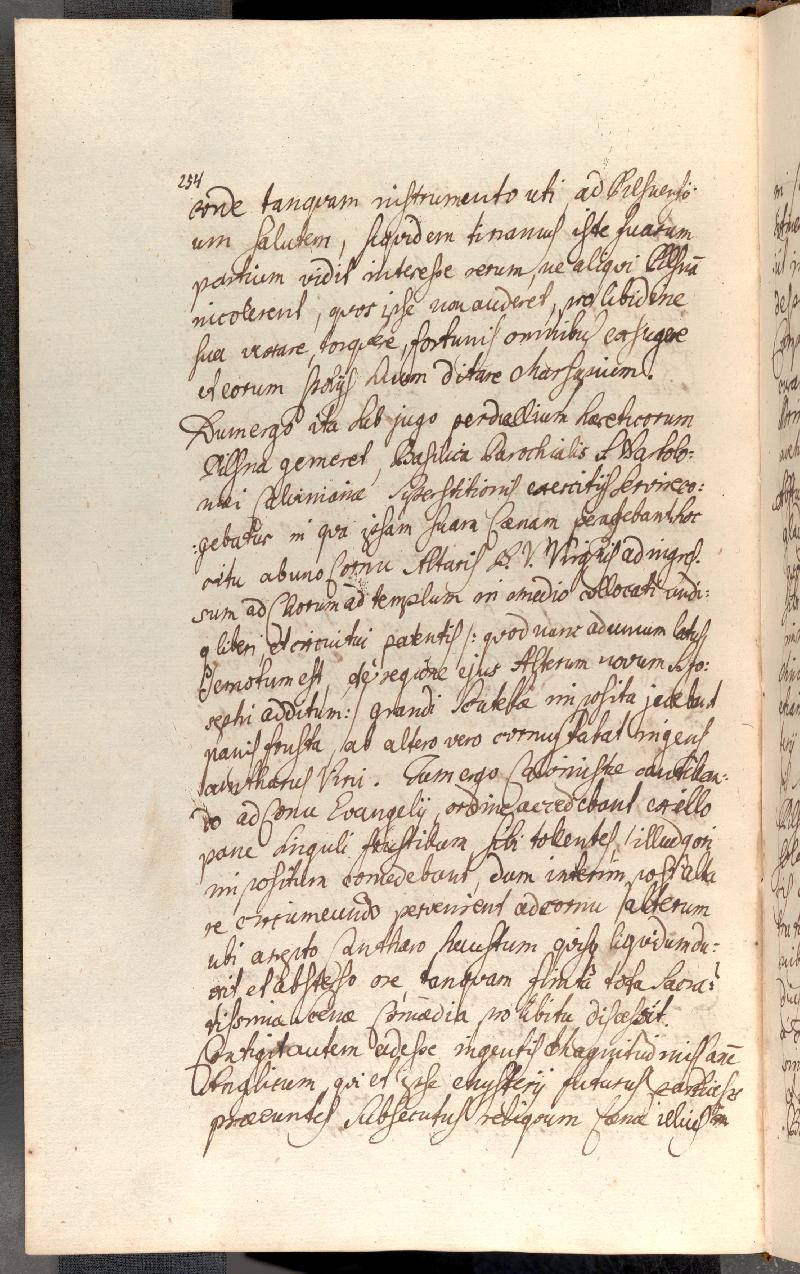 254
corde tanqvam instrumento uti ad Pilsnensi-
um salutem, siqvidem tirannus iste suarum
partium vidit interesse rerum, ne aliqvi Pilsnã
incolerent, qvos ipse non auderet, pro libidine
sua vexare, torqvere, fortunis omnibus exsugere
et eorum spolijs suum ditare Marsupium.
Dum ergo ita sub jugo perduellium haereticorum
Pilsna gemeret, Basilica Parochialis S. Bartolo-
mei Calvinianae superstitionis exercitijs servire co:
:gebatur in qva ipsam suam Caenam peragebant hoc
ritu ab uno Cornu Altaris B. V. Virginis ad ingres.
sum ad Chorum ad templum in medio collocati undi:
q liberi, et circuitui patentis /: qvod nunc ad unum latus
demotum est, de regione ejus Alterum novum S. Jo:
sephi additum:/ grandi Scutellae imposita jacebant
panis frusta, ab altero vero cornu stabat ingens
cantharus Vini. Tum ergo Calvinistae cantillan:
do ad Cornu Evangelij, ordine accedebant ex illo
pane singuli frustillum sibi tollentes, illud qori
impositum comedebant, dum interim post alta
re circumeundo pervenirent ad cornu alterum
ubi arepto Cantharo haustum qvisq liqvidum du:
xit et absterso ore, tanqvam finita tota Sacra:
tissima scena Comaedia pro libitu discessit.
Contigit autem adesse ingentis Magnitudinis canẽ
Anglicum, qvi et ipse mysterij futurus particeps
praeeuntes subsecutus reliqvum Caenae illius